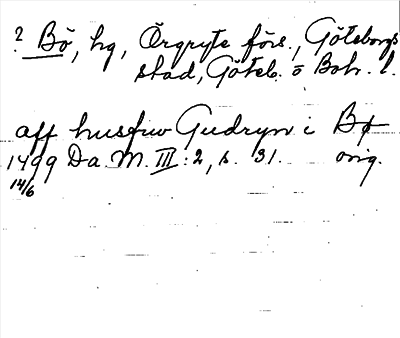 ? Bö, hg, Örgryte förs., Göteborgs
stad, Göteb. o Boh. l.
aff husfrw Gudryn i Bø
1499 Da M. III: 2, s. 31. orig.
14/6